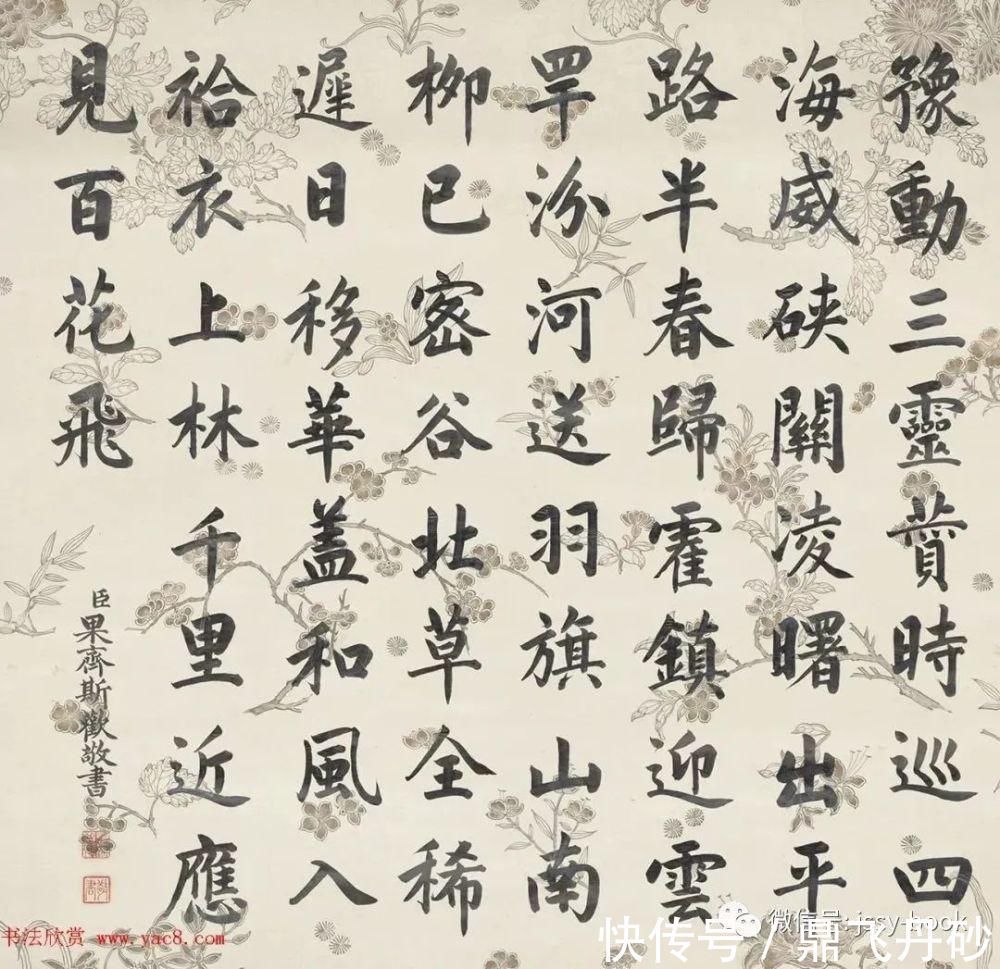 豫動三靈賛時巡四
海威硤關凌曙出平
路半春歸霍鎮迎雲
罕汾河送羽旗山南
柳已密谷北草全稀
遲日移華蓋和風入
袷衣上林千里近應
見百花飛
臣果齊斯歡敬書
书法欣赏 www.yac8.com
微信号: jssy-book
快传号 / 鼎飞丹砂